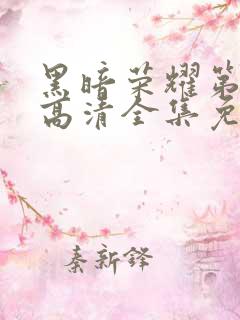 黑暗荣耀第
高清全集免
秦新铎